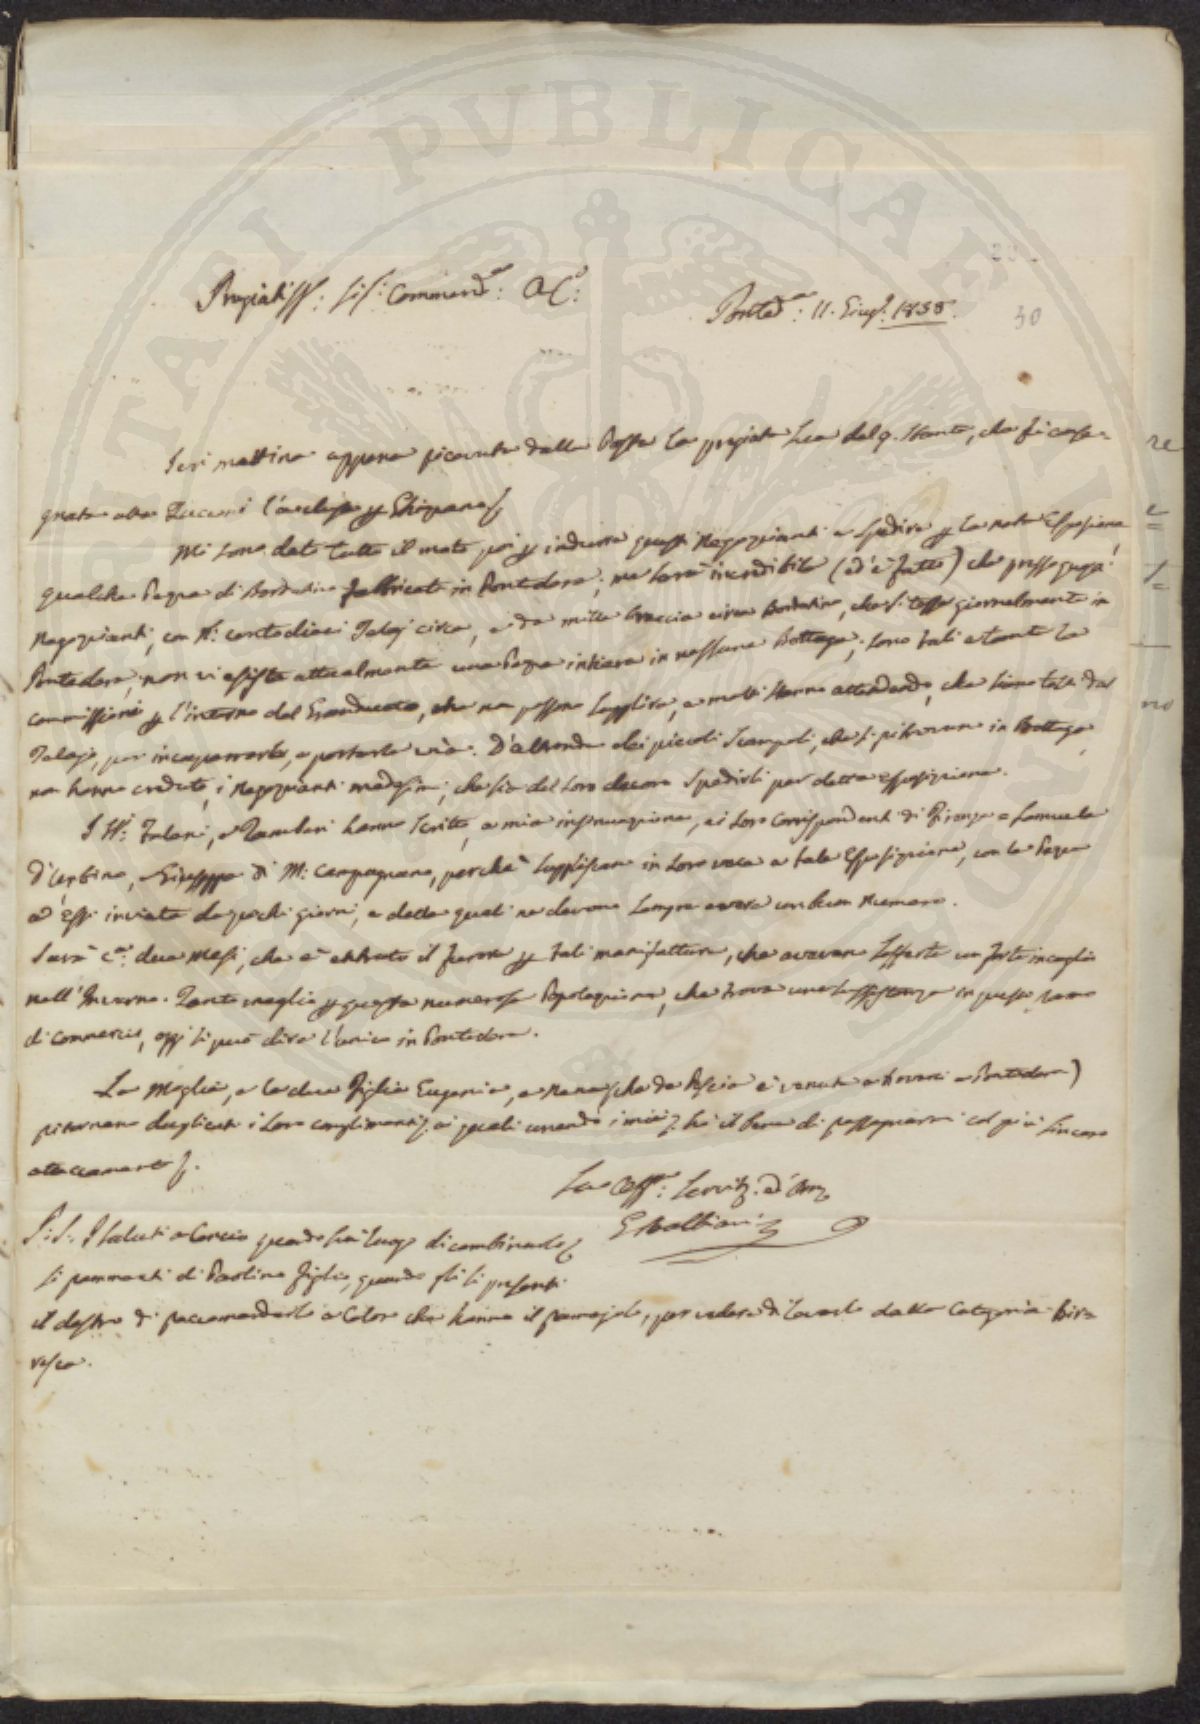 Pregiatiss: Sig: Command:re A C:
Ponted:a 11. Giug:o 1838.
30
Ieri mattina appena ricevuta dalla Posta la pregiata Sua del 9. stante, che fù conse=
gnata alla l'acclusa p
Mi sono dato tutto il moto poi p indurre questi Negozianti a spedire p la nota Esposizione
qualche Pezza di Bordatino fabbricato in Pontedera; ma sarà incredibile (ed è fatto) che presso questi
Negozianti, con N: centodieci Telaj circa, e da mille braccia circa Bordatino, che si tesse giornalmente in
Pontedera, non vi esiste attualmente una Pezza intiera in nessuna Bottega; sono tali e tante le
commissioni p l'interno del Granducato, che non possono supplire, e molti stanno attendendo, che siano tolte dal
Telajo, per incaparrarle, e portarle via. D'altronde dei piccoli Scampoli, che si ritrovano in Bottega
non hanno creduto, i Negozianti medesimi, che sia del loro decoro spedirli per detta esposizione.
I SS:ri e hanno scritto, a mia insinuazione, ai loro corrispondenti di Firenze Samuele
D'Urbino, e Giuseppe di M: Campagnano, perchè supplischino in loro vece a tale Esposizione, con le Pezze
ad essi inviate da pochi giorni, e delle quali ne devono sempre avere un buon numero.
Sarà c:a due Mesi, che è entrato il furore p tali manifatture, che avevano sofferto un forte incaglio
nell'Inverno. Tanto meglio p questa numerosa Popolazione, che trova una sussistenza in questo ramo
di commercio, oggi si può dire l'unico in Pontedera.
La Moglie, e le due Figlie Eugenia, e (che da Pescia è venuta a trovarci a Pontedera)
ritornano duplicati i loro complimenti, ai quali unendo i miei, hò il bene di rassegnarmi col più sincero
attaccamento.
Suo Aff: Servit. ed Am
P:S: I saluti a quando hai luogo di combinarlo
si rammenti di Paolino figlio, quando gli si presenti
il destro di raccomandarlo a Coloro che hanno il per vedere di levarlo dalla Categoria Bir=
resca.
re
e
no